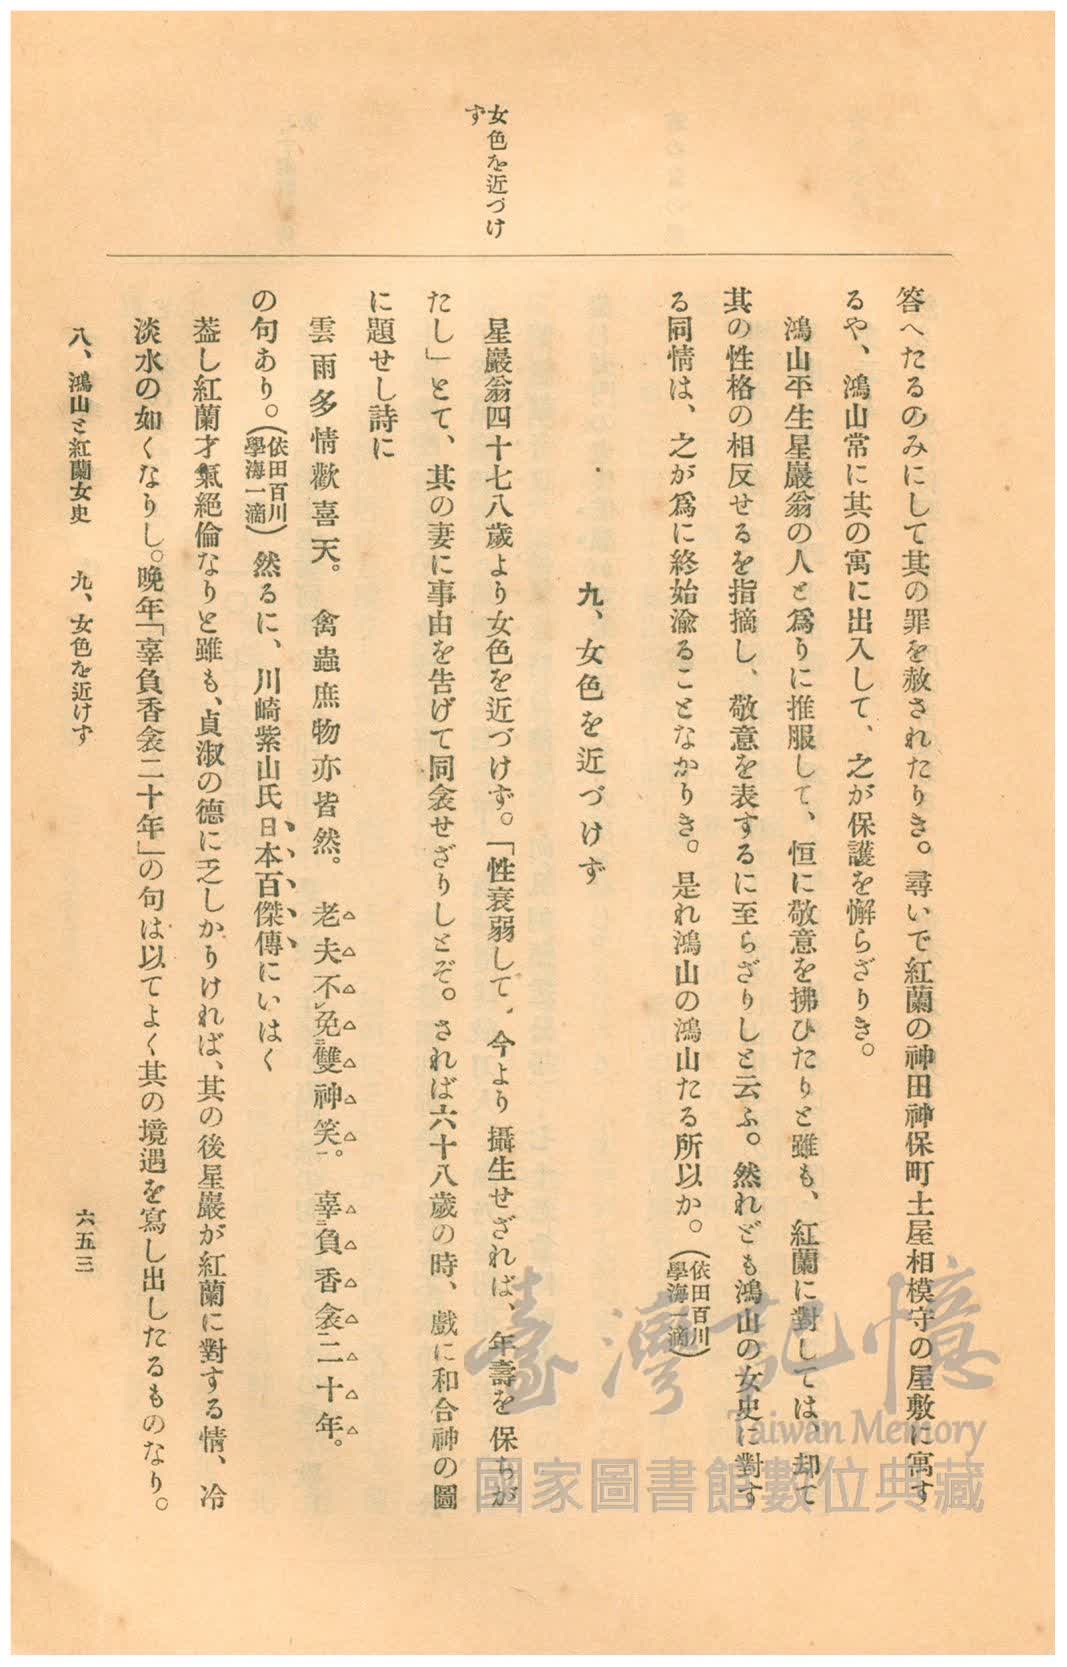 女色を近づけ
ず
答へたるのみにして其の罪を赦されたりき。尋いで紅蘭の神田神保町土屋相模守の屋敷に寓す
るや、鴻山常に其の寓に出入して、之が保護を懈らざりき。
鴻山平生星巖翁の人と爲りに推服して、恒に敬意を拂ひたりと雖も、紅蘭に對しては、却て
其の性格の相反せるを指摘し、敬意を表するに至らざりしと云ふ。然れども鴻山の女史に對す
る同情は、之が爲に終始渝ることなかりき。是れ鴻山の鴻山たる所以か。(依田百川學海一滴)
九、女色を近づけず
星巖翁四十七八歳より女色を近づけず。「性衰弱して、今より攝生せざれば、年壽を保ちが
たし」とて、其の妻に事由を告げて同衾せざりしとぞ。されば六十八歳の時、戲に和合神の圖
に題せし詩に
雲雨多情歡喜天。禽蟲庶物亦皆然。老夫不レ免二雙神笑一。辜二負香衾二十年。
の句あり。(依田百川學海一滴)然るに、川崎紫山氏日本百傑傳にいはく
葢し紅蘭才氣絕倫なりと雖も、貞淑の德に乏しかりければ、其の後星巖が紅蘭に對する情、冷
淡水の如くなりし。晩年「辜負香衾二十年」の句は以てよく其の境遇を寫し出したるものなり。
八、鴻山と紅蘭女史　九、女色を近けず
六五三
臺灣記憶
Taiwan Memory
國家圖書館數位典藏